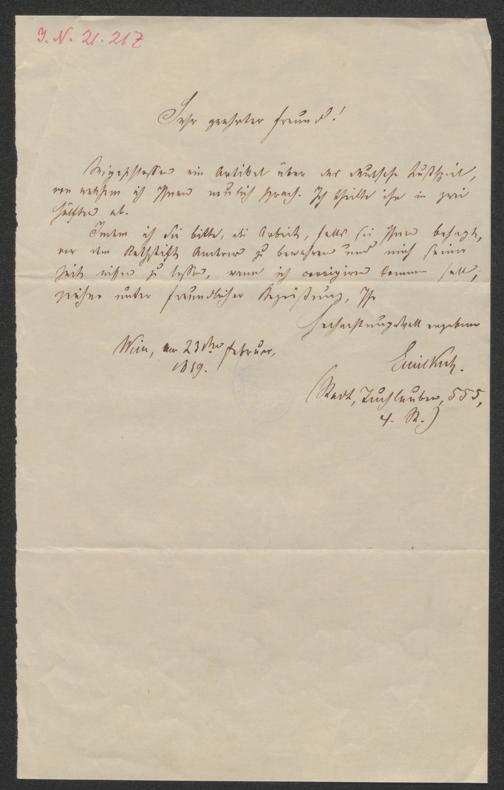 J. N. 21.217
Sehr geehrter Freund!
Beigeschlossen ein Artikel über das deutsche Lustspiel,
von welchem ich Ihnen neulich sprach. Ich theilte ihn in zwei
Hälften ab.
Indem ich Sie bitte, die Arbeit, falls sie Ihnen behagt,
vor dem Rothstifte Anderer zu bewahren und mich seiner
Zeit wissen zu lassen, wann ich corrigiren kommen soll,
zeichne unter freundlicher Begrüßung, Ihr
hochachtungsvoll ergebener
Wien, am 23ten Februar,
1859.
Emil Kuh.
(Stadt, Tuchlauben, 555,
4. St.)